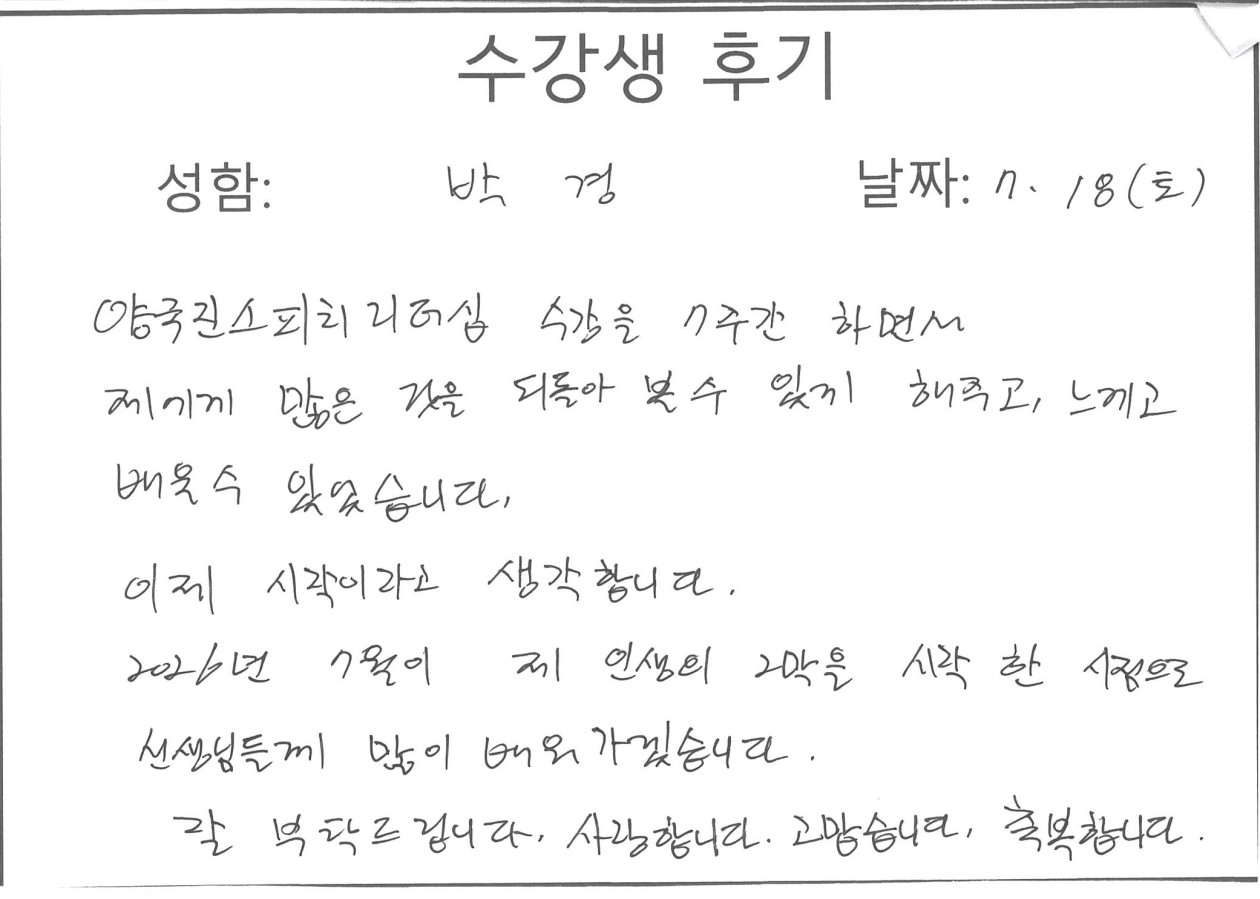 수강생 후기
성함: 박 경 날짜: 7. 18(토)
양국진스피치리더십 수강을 7주간 하면서
제에게 많은 것을 되돌아 볼 수 있게 해주고, 느끼고
배울 수 있었습니다.
이제 시작이라고 생각합니다.
2026년 7월이 제 인생의 2막을 시작 한 시점으로
선생님들께 많이 배워가겠습니다.
잘 부탁드립니다. 사랑합니다. 고맙습니다. 축복합니다.